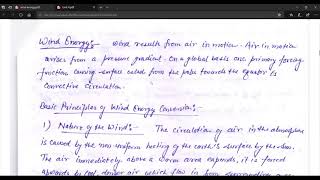 Wind Energy:- Wind results from air in motion. Air in motion
arises from a pressure gradient. On a global basis one primary forcing
function causing surface winds from the poles towards the equator is
convective circulation.
Basic Principles of Wind Energy Conversion:-
1) Nature of the Wind:- The circulation of air in the atmosphere
is caused by the non-uniform heating of the earth's surface by the sun.
The air immediately above a warm area expands, it is forced
upwards by cool, denser air which flows in from surrounding areas